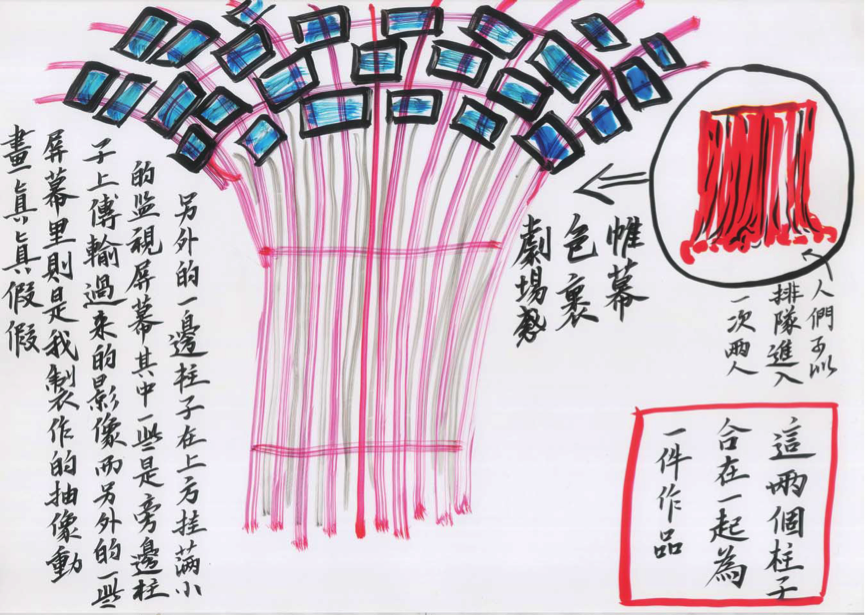 人們可以
排隊進入
一次兩人
帷幕
色裹
劇場勢
這兩個柱子
合在一起為
一件作品
另外的一邊柱子在上方挂滿小
的监視屏幕其中一些是旁邊柱
子上傳輸過來的影像而另外的一些
屏幕里則是我製作的抽像動
畫真真假假